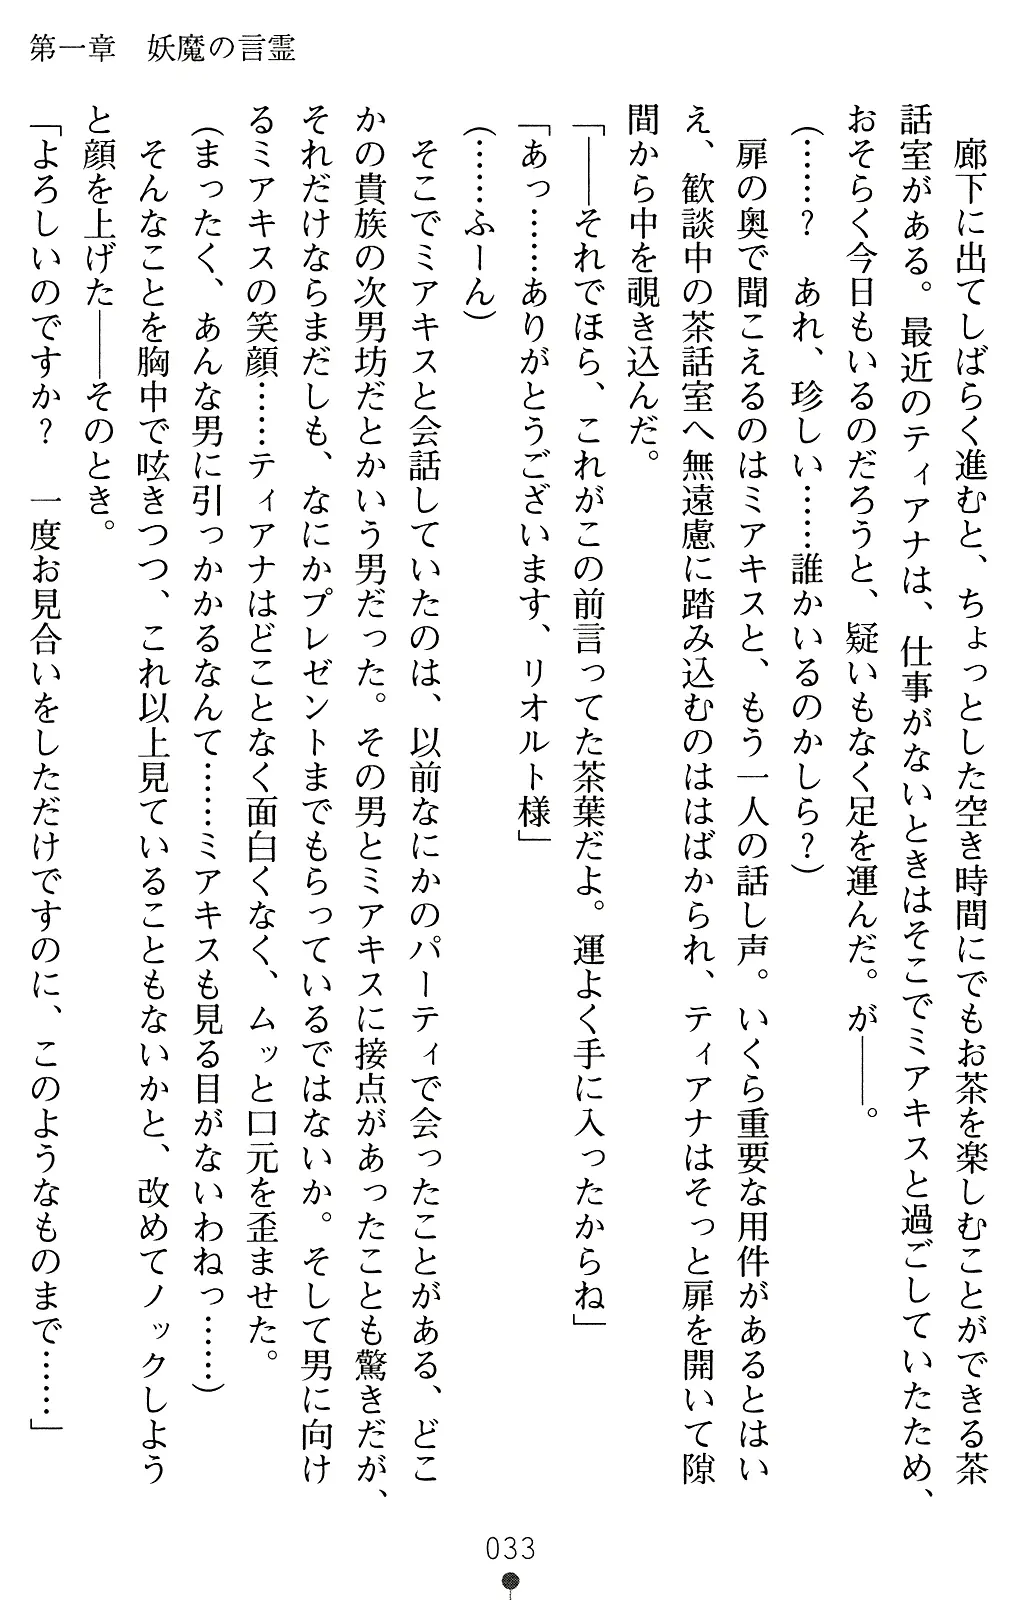 第一章　妖魔の言霊
　廊下に出てしばらく進むと、ちょっとした空き時間にでもお茶を楽しむことができる茶
話室がある。最近のティアナは、仕事がないときはそこでミアキスと過ごしていたため、
おそらく今日もいるのだろうと、疑いもなく足を運んだ。が――。
（……？　あれ、珍しい……誰かいるのかしら？）
　扉の奥で聞こえるのはミアキスと、もう一人の話し声。いくら重要な用件があるとはい
え、歓談中の茶話室へ無遠慮に踏み込むのははばかられ、ティアナはそっと扉を開いて隙
間から中を覗き込んだ。
「――それでほら、これがこの前言ってた茶葉だよ。運よく手に入ったからね」
「あっ……ありがとうございます、リオルト様」
（……ふーん）
　そこでミアキスと会話していたのは、以前なにかのパーティで会ったことがある、どこ
かの貴族の次男坊だとかいう男だった。その男とミアキスに接点があったことも驚きだが、
それだけならまだしも、なにかプレゼントまでもらっているではないか。そして男に向け
るミアキスの笑顔……ティアナはどことなく面白くなく、ムッと口元を歪ませた。
（まったく、あんな男に引っかかるなんて……ミアキスも見る目がないわねっ……）
　そんなことを胸中で呟きつつ、これ以上見ていることもないかと、改めてノックしよう
と顔を上げた――そのとき。
「よろしいのですか？　一度お見合いをしただけですのに、このようなものまで……」
033